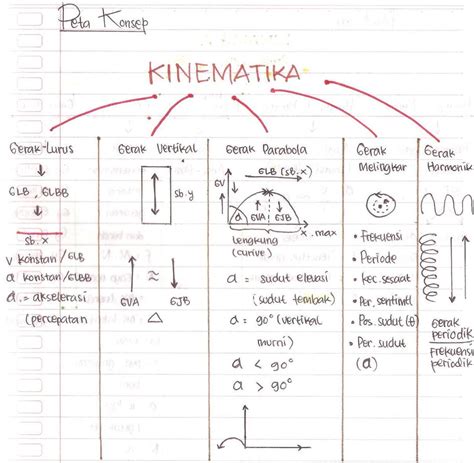 Peta Konsep
KINEMATIKA
Gerak Lurus
GLB, GLBB
sb. x
v konstan/GLB
a konstan/GLBB
a = akselerasi
(percepatan
Gerak Vertikal
sb. y
≈
GVA GJB
△
Gerak Parabola
GLB (sb. x)
GV
a GVA GJB
x. max
lengkung
(curive)
a = sudut elevasi
(sudut tembak)
a = 90° (vertikal
murni)
a < 90°
a > 90°
Gerak
Melingkar
• Frekuensi
• Periode
• kec. sesaat
• Per. sentriptl
• Pos. sudut (θ)
• Per. sudut
(a)
Gerak
Harmonik
Gerak
periodik
Frekuensi
periodik